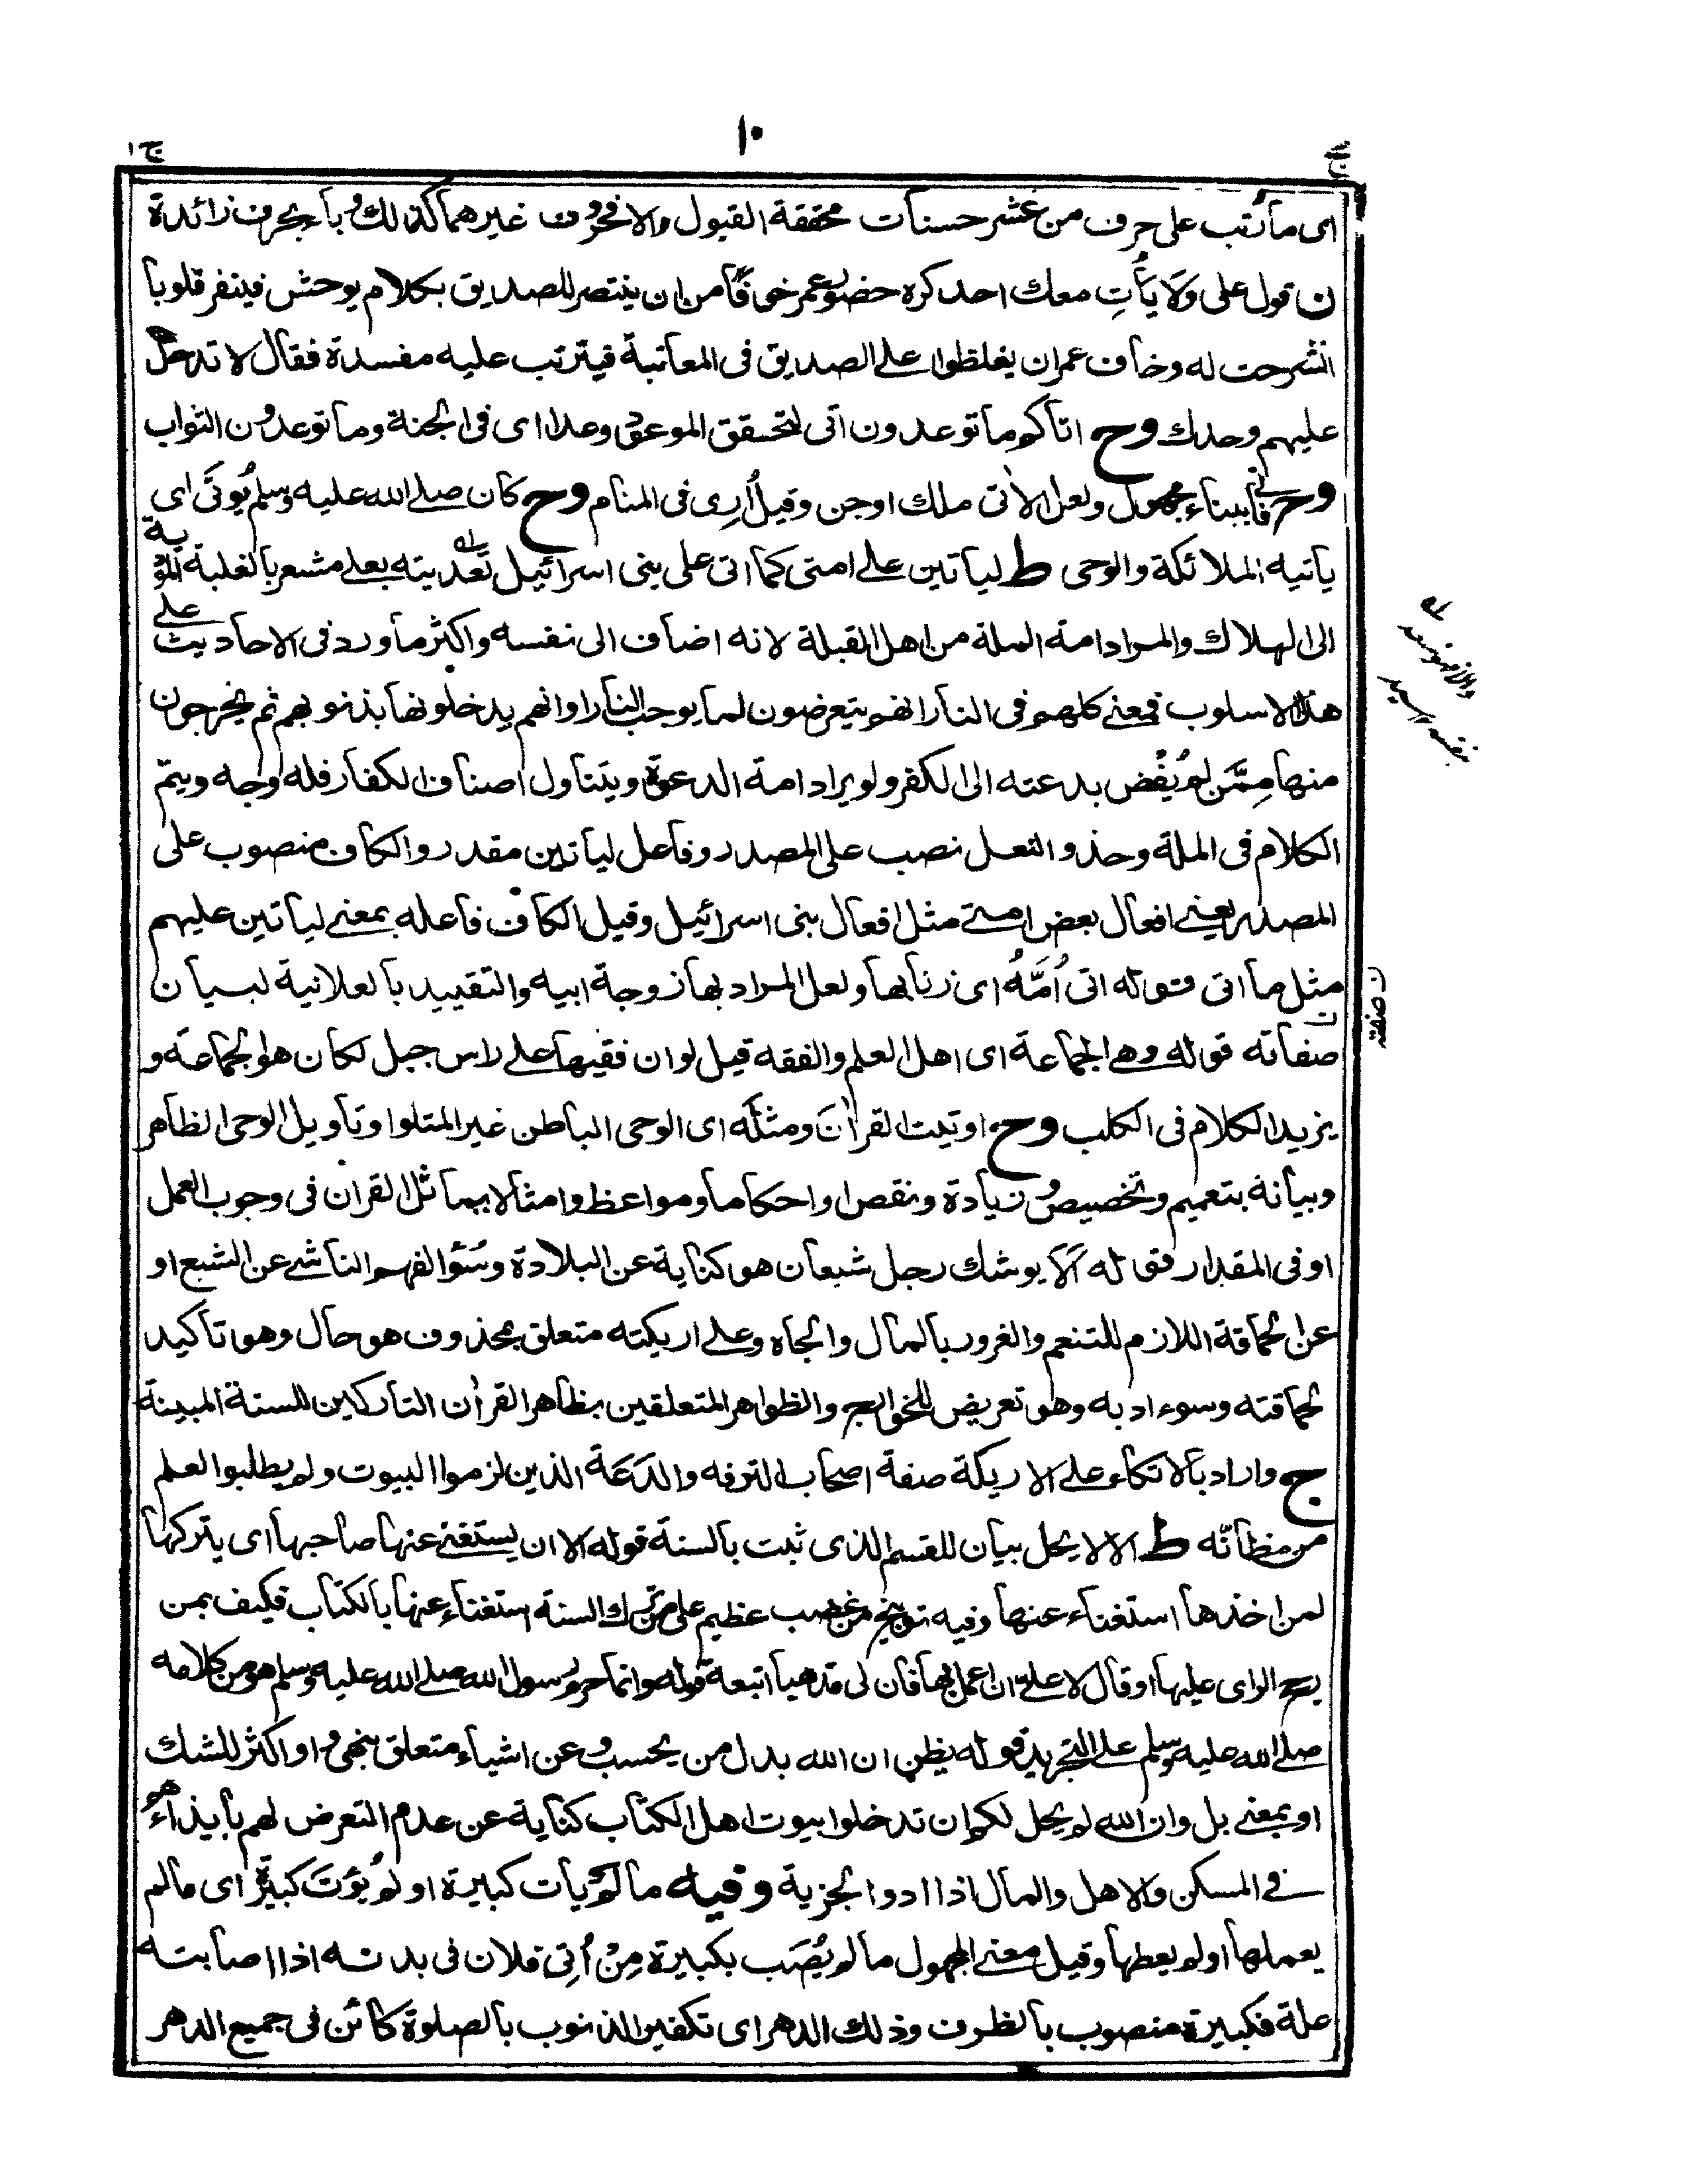 ١٠
ج ١
اى ما رُتب على حرف من عشر حسنات محققة القبول والا فحروف غيرهما كذلك و بأ بحرف زائدة
ن قول على ولا يأتِ معك احد كره حضور عمر خوفًا من ان ينتصر للصديق بكلام يوحش فينفر قلوبا
انشرحت له وخاف عمر ان يغلظوا على الصديق فى المعاتبة فيترتب عليه مفسدة فقال لا تدخل
عليهم وحدك وح اتاكم ما توعدون اتى لتحقق الموعود وعدا اى فى الجنة وما توعدون الثواب
وح فأتى ببناء مجهول ولعل الاتى ملك او جن وقيل أُرِى فى المنام وح كان صلے الله عليه وسلم يُوتَى اى
ياتيه الملائكة والوحى ط لياتين علے امتى كما اتى على بنى اسرائيل تعديته بعلے مشعر بالغلبة المؤدية
الى الهلاك والمراد امة الملة من اهل القبلة لانه اضاف الى نفسه واكثر ما ورد فى الاحاديث علے
هذا الاسلوب فمعنے كلهم فى النار انهم يتعرضون لما يوجب النار او انهم يدخلونها بذنوبهم ثم يخرجون
منها مِمَّن لم يُفْض بدعته الى الكفر ولو يراد امة الدعوة ويتناول اصناف الكفار فله وجه ويتم
الكلام فى الملة وحذو النعل نصب على المصدر وفاعل لياتين مقدر والكاف منصوب على
المصدر يعنے افعال بعض امتے مثل افعال بنى اسرائيل وقيل الكاف فاعله بمعنے لياتين عليهم
مثل ما اتى قوله اتى اُمَّهُ اى زنا بها ولعل المراد بها زوجة ابيه والتقييد بالعلانية لبيان
صفاته قوله وهے الجماعة اى اهل العلم والفقه قيل لو ان فقيها علے راس جبل لكان هو الجماعة و
يزيد الكلام فى الكلب وح اوتيت القرانَ ومثلَه اى الوحى الباطن غير المتلو او تأويل الوحى الظاهر
وبيانه بتعميم وتخصيص وزيادة ونقص او احكاما ومواعظ وامثالا يماثل القران فى وجوب العمل
او فى المقدار قوله ألا يوشك رجل شبعان هو كناية عن البلادة وسُوء الفهم الناشے عن الشبع او
عن الحماقة اللازم للتنعم والغرور بالمال والجاه وعلے اريكته متعلق بمحذوف هو حال وهو تأكيد
لحماقته وسوء ادبه وهو تعريض للخوارج والظواهر المتعلقين بظاهر القران التاركين للسنة المبينة
ج واراد بالاتكاء علے الاريكة صفة اصحاب الترفه والدَعَة الذين لزموا البيوت ولم يطلبوا العلم
من مظانّه ط الا لا يحل بيان للقسم الذى ثبت بالسنة قوله الا ان يستغنے عنها صاحبها اى يتركها
لمن اخذها استغناء عنها وفيه توبيخ من غضب عظيم على من ترك السنة استغناء عنها بالكتاب فكيف بمن
يرجح الراى عليها او قال لا علے ان اعمل بها فان لى مذهبا اتبعه قوله وانما حرم رسول الله صلے الله عليه وسلم هو من كلامه
صلے الله عليه وسلم على التجريد قوله يظن ان الله بدل من يحسب و عن اشياء متعلق بنهى و او اكثر للشك
او بمعنے بل وان الله لم يحل لكم ان تدخلوا بيوت اهل الكتاب كناية عن عدم التعرض لهم بايذاءهم
فے المسكن والاهل والمال اذا ادوا الجزية وفيه ما لم يأت كبيرة او لم يُؤتَ كبيرةً اى ما لم
يعملها او لم يعطها وقيل معنے المجهول ما لم يُصَب بكبيرة مِنْ اُتِى فلان فى بدنه اذا اصابته
علة فكبيرة منصوب بالظرف وذلك الدهر اى تكفير الذنوب بالصلوة كائن فى جميع الدهر